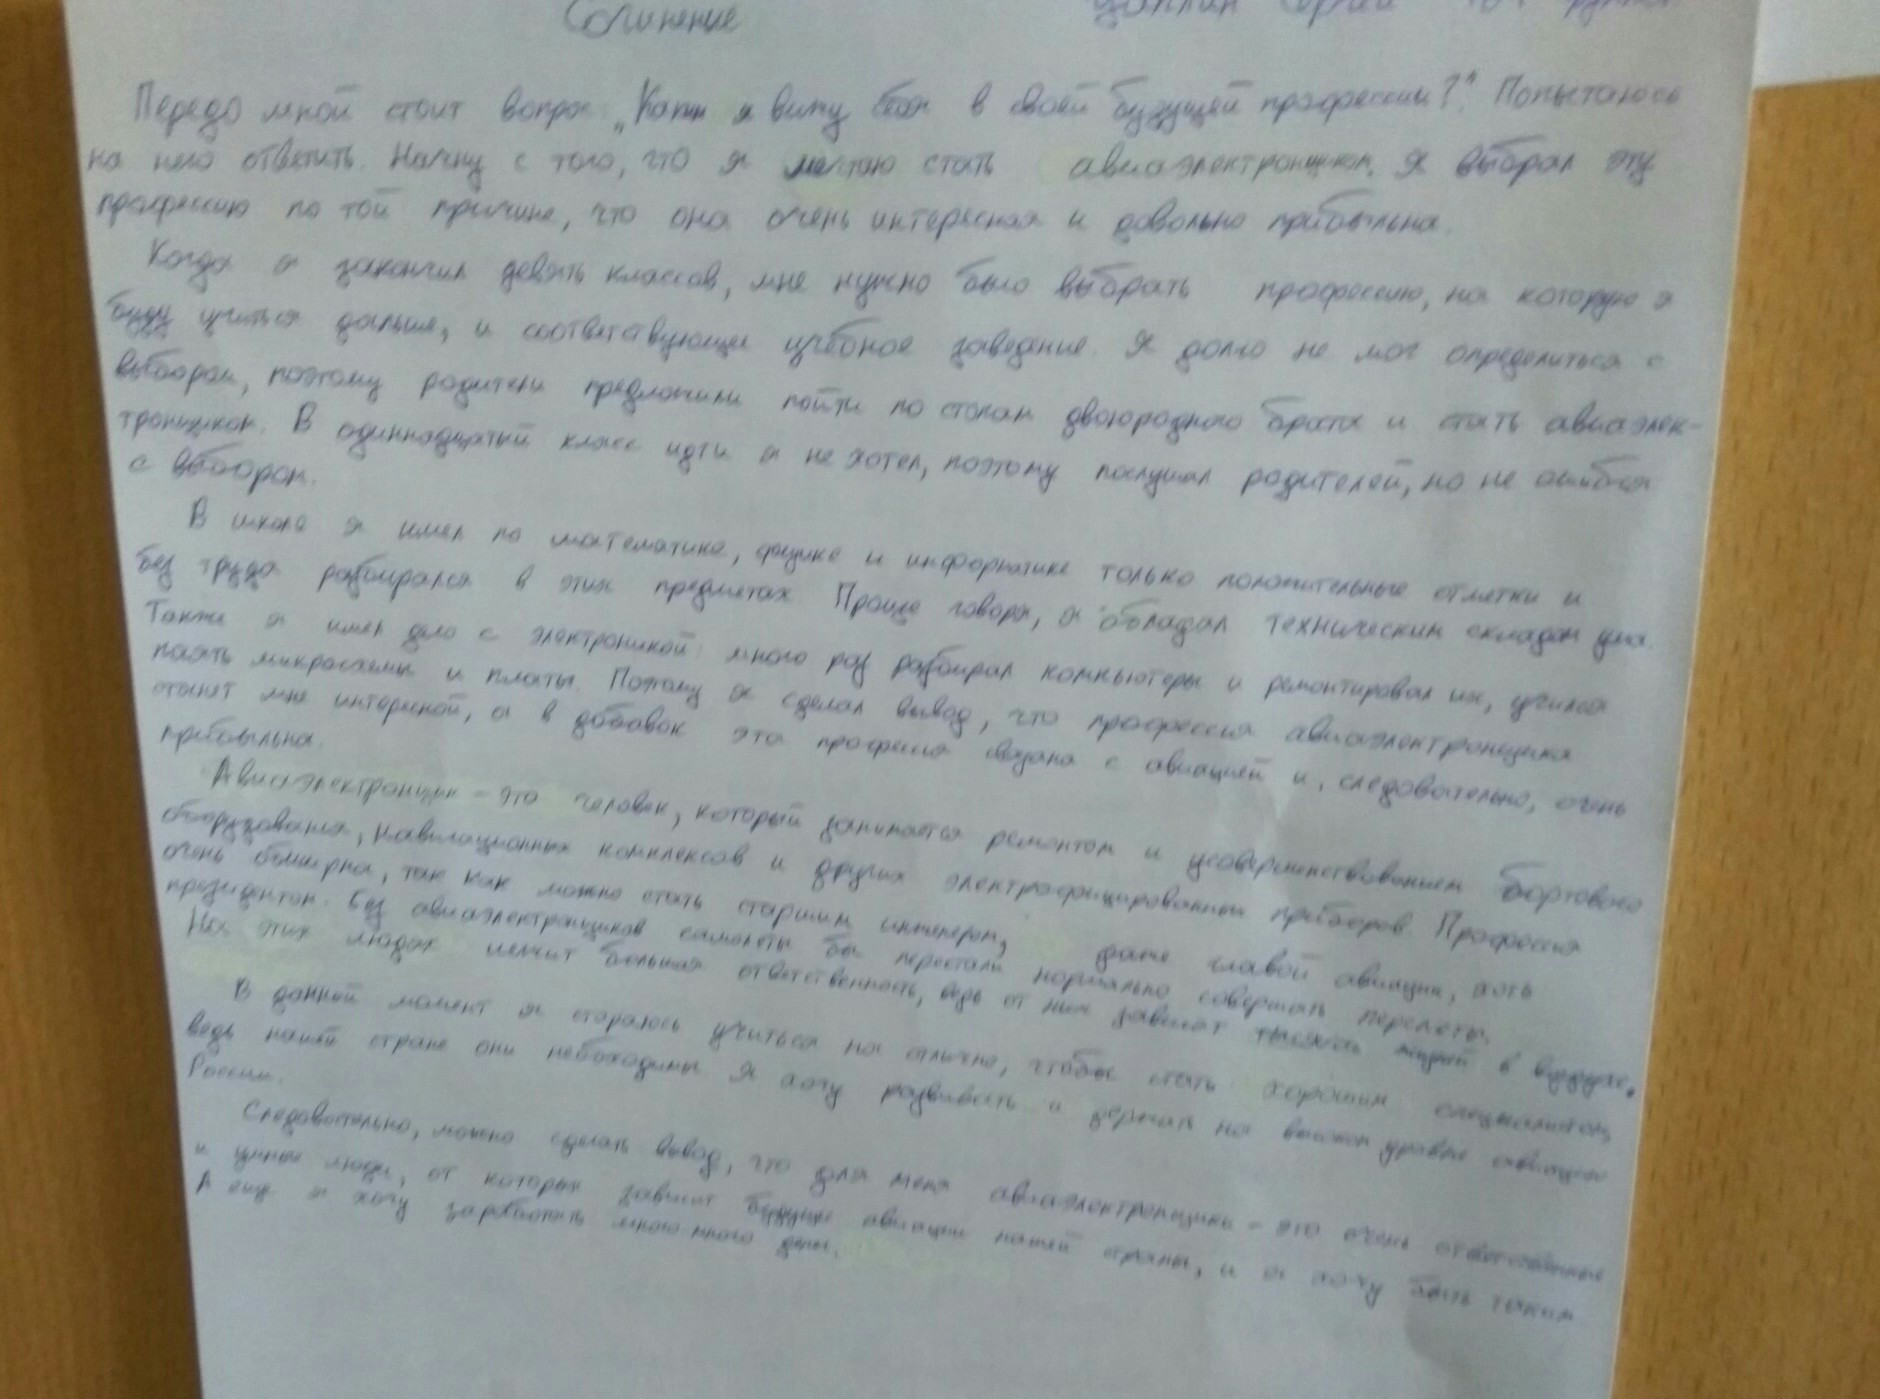 Сочинение
Передо мной стоит вопрос „Каким я вижу себя в своей будущей профессии?". Попытаюсь
на него ответить. Начну с того, что я мечтаю стать авиаэлектронщиком. Я выбрал эту
профессию по той причине, что она очень интересная и довольно прибыльна.
Когда я закончил девять классов, мне нужно было выбрать профессию, на которую я
буду учиться дальше, и соответствующее учебное заведение. Я долго не мог определиться с
выбором, поэтому родители предложили пойти по стопам двоюродного брата и стать авиаэлек-
тронщиком. В одиннадцатый класс идти я не хотел, поэтому послушал родителей, но не ошибся
с выбором.
В школе я имел по математике, физике и информатике только положительные отметки и
без труда разбирался в этих предметах. Проще говоря, я обладал техническим складом ума.
Также я имел дело с электроникой: много раз разбирал компьютеры и ремонтировал их, учился
паять микросхемы и платы. Поэтому я сделал вывод, что профессия авиаэлектронщика
станет мне интересной, а в добавок эта профессия связана с авиацией и, следовательно, очень
прибыльна.
Авиаэлектронщик – это человек, который занимается ремонтом и усовершенствованием бортового
оборудования, навигационных комплексов и других электрофицированных приборов. Профессия
очень обширна, так как можно стать старшим инженером, даже главой авиации, хоть
президентом. Без авиаэлектронщиков самолеты бы перестали нормально совершать перелеты.
На этих людях лежит большая ответственность, ведь от них зависят тысячи жизней в воздухе.
В данный момент я стараюсь учиться на отлично, чтобы стать хорошим специалистом,
ведь нашей стране они необходимы. Я хочу развивать и держать на высоком уровне авиацию
России.
Следовательно, можно сделать вывод, что для меня авиаэлектронщики – это очень ответственные
и умные люди, от которых зависит будущее авиации нашей страны, и я хочу быть таким.
А еще я хочу заработать много-много денег.